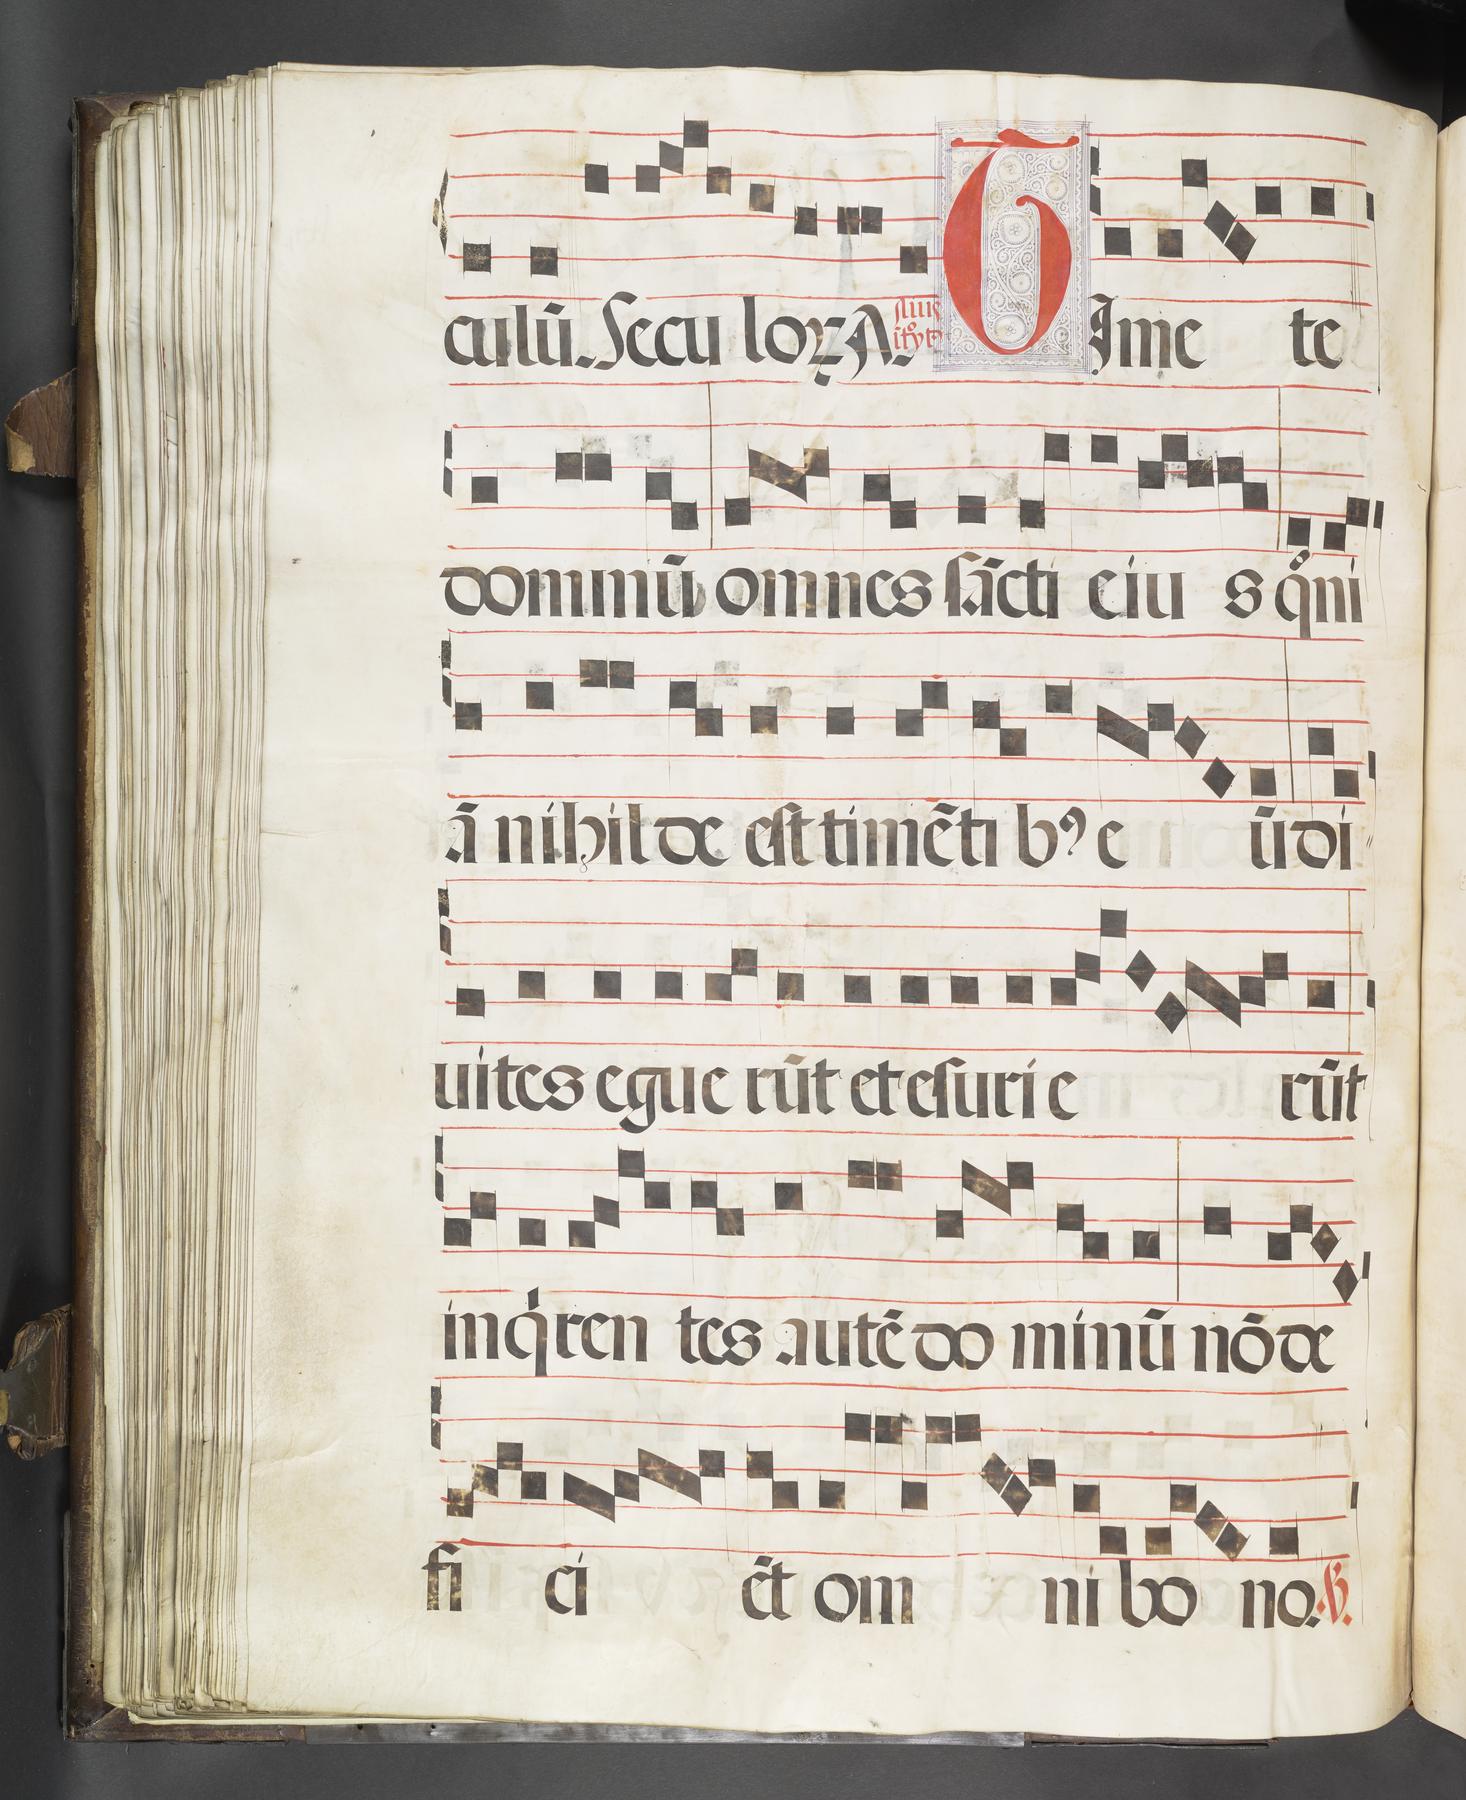 culū. Secu loꝝ A. TIme te
dominū omnes sācti eiu s qͥni
ā nihil de est timēti bꝰ e ū di
uites egue rūt et esuri e rūt
inqͥren tes autē do minū nō de
fi ci ēt om ni bo no. ꝟ.